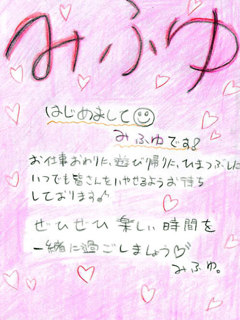 みふゆ
はじめまして☺
みふゆです♪
お仕事おわりに、遊び帰りに、ひまつぶしに
いつでも皆さんをいやせるようお待ち
しております♪
ぜひぜひ楽しい時間を
一緒に過ごしましょう♡
みふゆ。